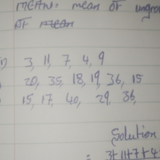 MEAN: mean of ungrou
of mean
3, 11, 7, 4, 9
20, 35, 18, 19, 36, 15
15, 17, 40, 29, 36,
Solution
= 3+11+7+4